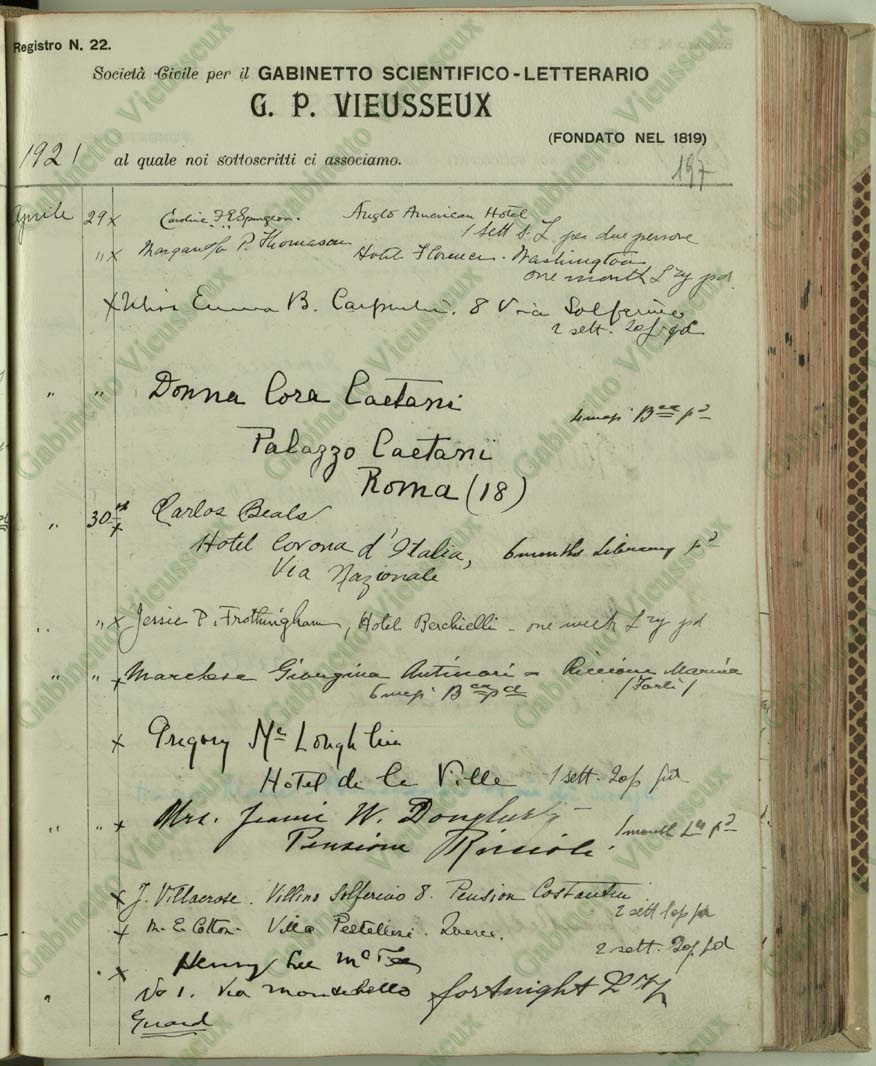 Registro N. 22.
Società Civile per il GABINETTO SCIENTIFICO-LETTERARIO
G. P. VIEUSSEUX
(FONDATO NEL 1819)
1921 al quale noi sottoscritti ci associamo.
197
Aprile 29 x Caroline F. E. Spurgeon. Anglo American Hotel
1 sett. S. L. per due persone
" x P. Thomason Hotel Florence. Washington
one month Lry pd.
x Miss Emma B. 8 Via Solferino
2 sett. 2op. pd
" " Donna Cora Caetani
4 mesi
Palazzo Caetani
Roma (18)
" 30 x Carlos Beals
Hotel Corona d'Italia, 6 months Library pd
Via Nazionale
" " x Jessie P. Frothingham, Hotel Berchielli - one week Lry pd
" " x Marchesa Giorgina Antinori = Riccione Marina
6 mesi (Forlì)
x Gregory Mc Loughlin
Hotel de la Ville 1 sett. 2op pd
" " x Mrs. Jeanie W.
Pensione Riccioli. 1 month Lry pd
x J. Villacrose. Villino Solferino 8. Pension Costantini
2 sett 1op pd
x M. E. Cotton. Villa Pestellini. Querce.
2 sett. 2op pd
x Henry Lee McFee
" No 1. Via Montebello fortnight Lry
Guard
Gabinetto Vieusseux